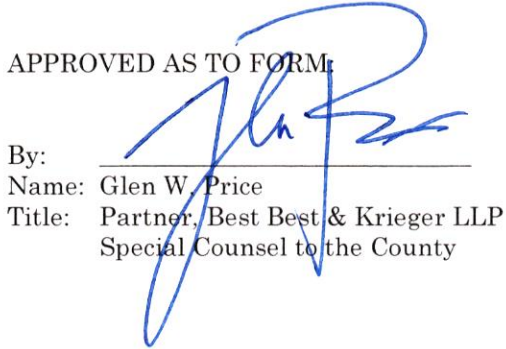 APPROVED AS TO FORM:
By:
Name: Glen W. Price
Title: Partner, Best Best & Krieger LLP
Special Counsel to the County